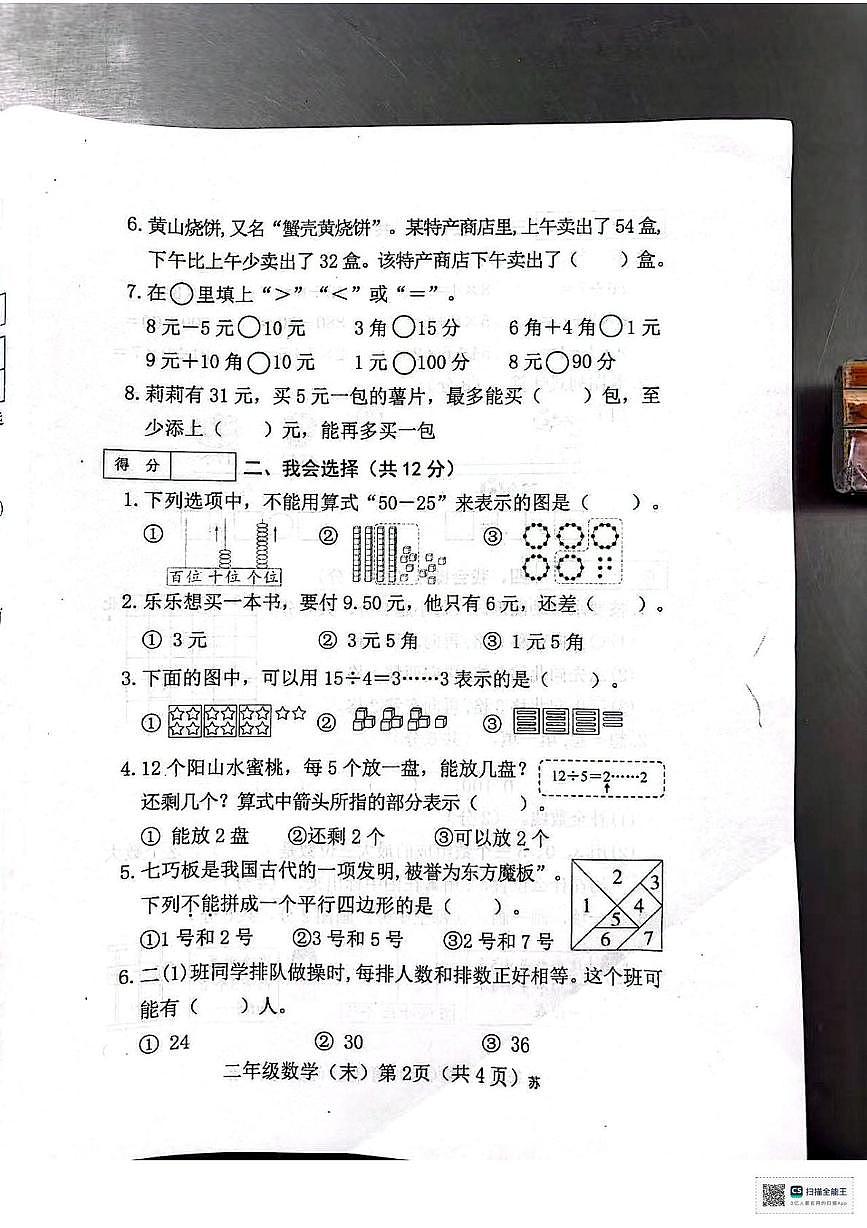 6. 黄山烧饼,又名“蟹壳黄烧饼”。某特产商店里,上午卖出了 54 盒,
下午比上午少卖出了 32 盒。该特产商店下午卖出了（　　）盒。
7. 在○里填上“＞”“＜”或“＝”。
8 元－5 元○10 元　　3 角○15 分　　6 角＋4 角○1 元
9 元＋10 角○10 元　　1 元○100 分　　8 元○90 分
8. 莉莉有 31 元，买 5 元一包的薯片，最多能买（　　）包，至
少添上（　　）元，能再多买一包
得 分
二、我会选择（共 12 分）
1. 下列选项中，不能用算式“50－25”来表示的图是（　　）。
① ② ③
百位 十位 个位
2. 乐乐想买一本书，要付 9.50 元，他只有 6 元，还差（　　）。
① 3 元　　② 3 元 5 角　　③ 1 元 5 角
3. 下面的图中，可以用 15÷4＝3……3 表示的是（　　）。
① ② ③
4. 12 个阳山水蜜桃，每 5 个放一盘，能放几盘？
12÷5＝2……2
还剩几个？算式中箭头所指的部分表示（　　）。
① 能放 2 盘　　②还剩 2 个　　③可以放 2 个
5. 七巧板是我国古代的一项发明,被誉为东方魔板”。
下列不能拼成一个平行四边形的是（　　）。
①1 号和 2 号　　②3 号和 5 号　　③2 号和 7 号
1 2 3 4 5 6 7
6. 二(1)班同学排队做操时,每排人数和排数正好相等。这个班可
能有（　　）人。
① 24　　② 30　　③ 36
二年级数学（末）第 2页（共 4 页）苏
CS 扫描全能王
3亿人都在用的扫描App